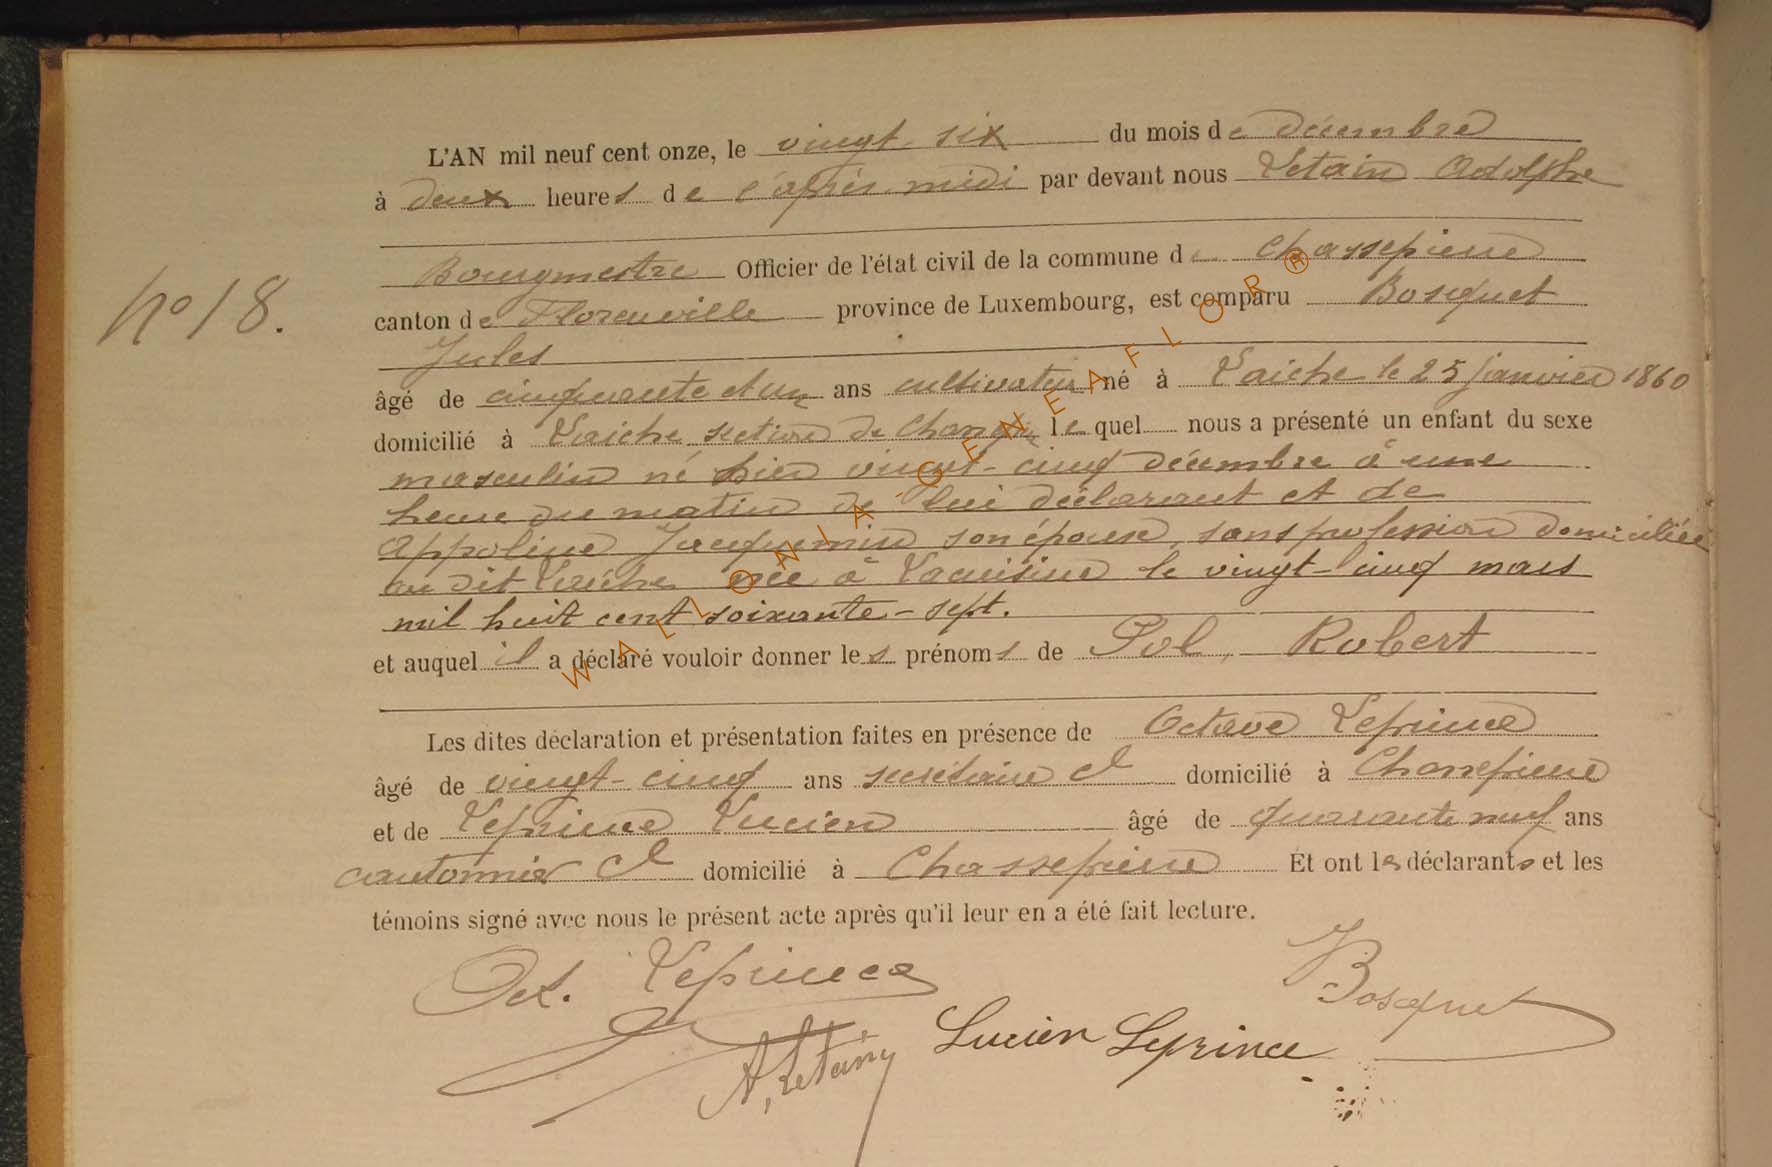 L'AN mil neuf cent onze, le vingt six du mois de décembre
à deux heures de l'après midi par devant nous Letain Adolphe
Bourgmestre Officier de l'état civil de la commune de Chassepierre
N° 18.
canton de Florenville province de Luxembourg, est comparu Bosquet
Jules
âgé de cinquante et un ans cultivateur né à Laiche le 25 janvier 1860
domicilié à Laiche section de lequel nous a présenté un enfant du sexe
masculin né hier vingt-cinq décembre à une
heure du matin de lui déclarant et de
Appoline Jacquemin son épouse, sans profession domiciliée
au dit Laiche née à Lacuisine le vingt-cinq mars
mil huit cent soixante-sept.
et auquel il a déclaré vouloir donner les prénoms de Pol, Robert
Les dites déclaration et présentation faites en présence de Octave Leprince
âgé de vingt-cinq ans secrétaire domicilié à Chassepierre
et de Leprince Lucien âgé de quarante neuf ans
cantonnier domicilié à Chassepierre Et ont les déclarants et les
témoins signé avec nous le présent acte après qu'il leur en a été fait lecture.
Oct. Leprince
J Bosquet
A. Letain Lucien Leprince
WALLONIA-GENEAFLOR®